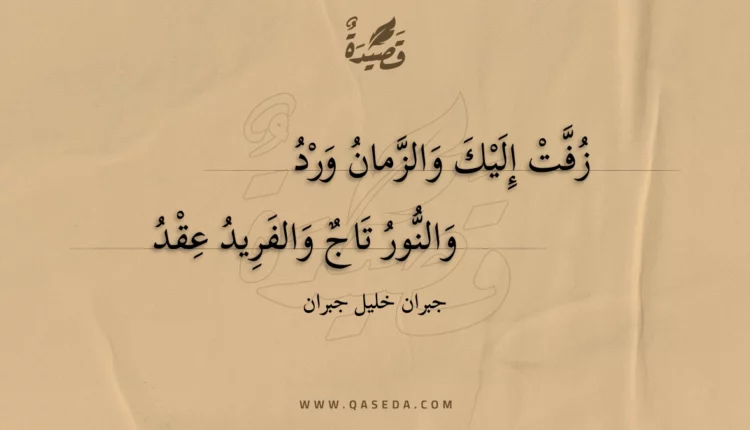 قَصِيدَةٌ
زُفَّتْ إِلَيْكَ وَالزَّمانُ وَرْدُ
وَالنُّورُ تَاجٌ وَالفَرِيدُ عِقْدُ
جبران خليل جبران
WWW.QASEDA.COM